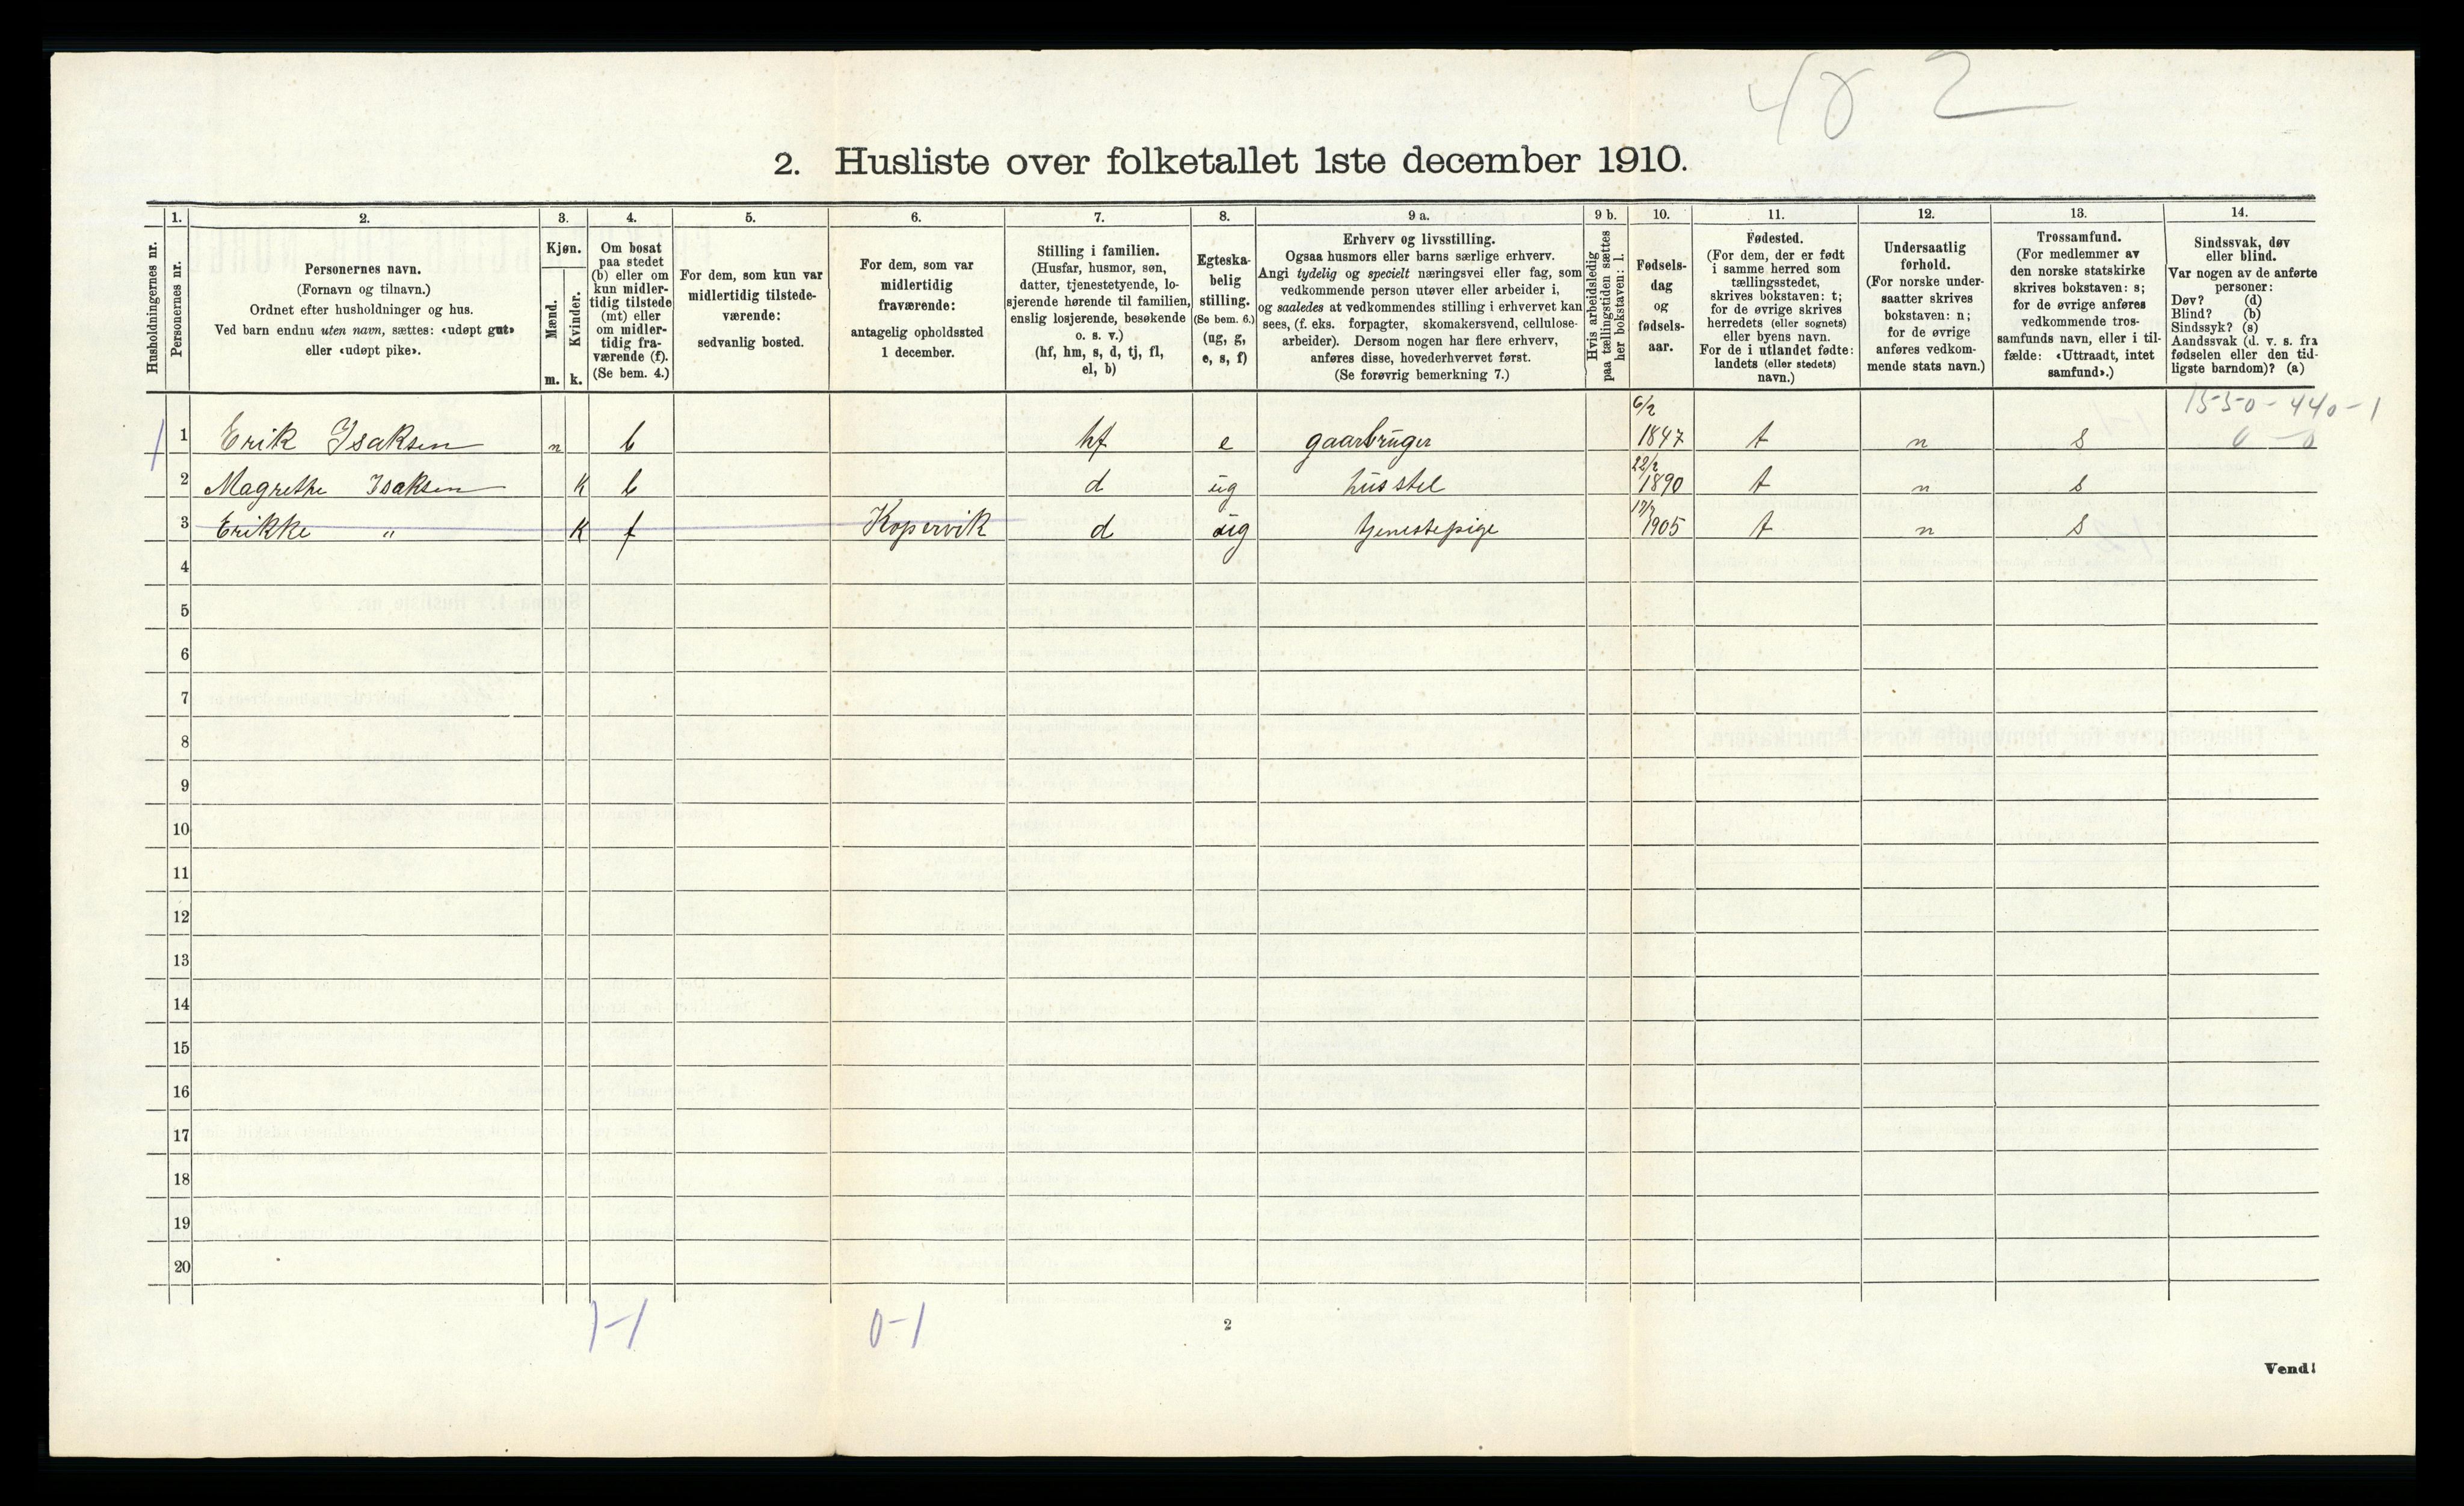 48 2
2. Husliste over folketallet 1ste december 1910.
Husholdningernes nr.
1.
Personernes nr.
2.
Personernes navn.
(Fornavn og tilnavn.)
Ordnet efter husholdninger og hus.
Ved barn endnu uten navn, sættes: «udøpt gut»
eller «udøpt pike».
3.
Kjøn.
Mænd.
Kvinder.
m. k.
4.
Om bosat
paa stedet
(b) eller om
kun midler-
tidig tilstede
(mt) eller
om midler-
tidig fra-
værende (f).
(Se bem. 4.)
5.
For dem, som kun var
midlertidig tilstede-
værende:
sedvanlig bosted.
6.
For dem, som var
midlertidig
fraværende:
antagelig opholdssted
1 december.
7.
Stilling i familien.
(Husfar, husmor, søn,
datter, tjenestetyende, lo-
sjerende hørende til familien,
enslig losjerende, besøkende
o. s. v.)
(hf, hm, s, d, tj, fl,
el, b)
8.
Egteska-
belig
stilling.
(Se bem. 6.)
(ug, g,
e, s, f)
9 a.
Erhverv og livsstilling.
Ogsaa husmors eller barns særlige erhverv.
Angi tydelig og specielt næringsvei eller fag, som
vedkommende person utøver eller arbeider i,
og saaledes at vedkommendes stilling i erhvervet kan
sees, (f. eks. forpagter, skomakersvend, cellulose-
arbeider). Dersom nogen har flere erhverv,
anføres disse, hovederhvervet først.
(Se forøvrig bemerkning 7.)
9 b.
Hvis arbeidsledig
paa tællingstiden sættes
her bokstaven: l.
10.
Fødsels-
dag
og
fødsels-
aar.
11.
Fødested.
(For dem, der er født
i samme herred som
tællingsstedet,
skrives bokstaven: t;
for de øvrige skrives
herredets (eller sognets)
eller byens navn.
For de i utlandet fødte:
landets (eller stedets)
navn.)
12.
Undersaatlig
forhold.
(For norske under-
saatter skrives
bokstaven: n;
for de øvrige
anføres vedkom-
mende stats navn.)
13.
Trossamfund.
(For medlemmer av
den norske statskirke
skrives bokstaven: s;
for de øvrige anføres
vedkommende tros-
samfunds navn, eller i til-
fælde: «Uttraadt, intet
samfund».)
14.
Sindssvak, døv
eller blind.
Var nogen av de anførte
personer:
Døv? (d)
Blind? (b)
Sindssyk? (s)
Aandssvak (d. v. s. fra
fødselen eller den tid-
ligste barndom)? (a)
1550-440-1
0 0
1 Erik Isaksen m b hf e gaarbruger 6/2 1847 t n s
2 Magrethe Isaksen k b d ug husstel 22/2 1890 t n s
3 Erikke " k f Kopervik d ug tjenestepige 1905 t n s
4
5
6
7
8
9
10
11
12
13
14
15
16
17
18
19
20
1-1 0-1
2
Vend!